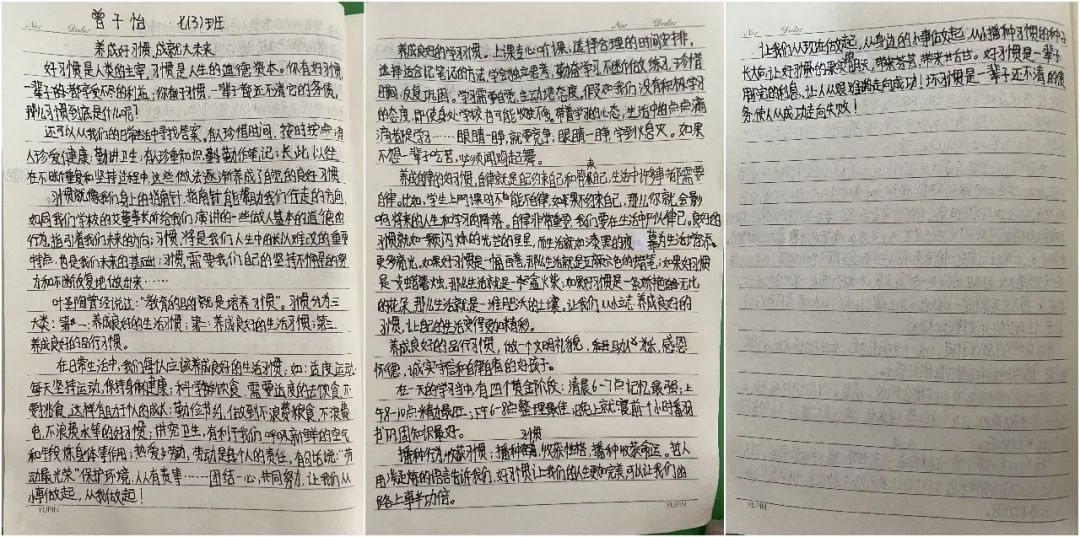 No:
Date:
曾子怡 七(3)班
养成好习惯,成就大未来
好习惯是人类的主宰,习惯是人生的道德资本。你有好习惯,
一辈子都享受不尽的利益;你有坏习惯,一辈都还不清它的债务,
那么习惯到底是什么呢?
还可以从我们的日常生活中寻找答案。有人珍惜时间,按时按点;有
人珍爱健康,勤讲卫生;有人珍重知识,勤勤作笔记;长此以往
在不断重复和坚持过程中,这些做法逐渐养成了自觉的良好习惯
习惯就像我们身上的指南针,指南针能帮助我们行走的方向,
如同我们学校的艾董事长所给我们演讲的一些做人基本的道德的
行为,指引着我们未来的方向;习惯,将是我们人生中的长久难改的重要
特点,也是我们未来的基础;习惯,需要我们自己的坚持不懈的努
力和不断反复地做出来……
叶圣陶曾经说过:“教育的目的就是培养习惯”。习惯分为三
大类:第一:养成良好的生活习惯;第二:养成良好的生活习惯;第三:
养成良好的品行习惯。
在日常生活中,我们每个人应该养成良好的生活习惯,如:适度运动,
每天坚持运动,保持身体健康;科学的饮食,需要适度的去饮食,不
要挑食,这样有助于个人的成长;勤俭节约,做到不浪费粮食,不浪费
电,不浪费水等的好习惯;讲究卫生,有利于我们呼吸新鲜的空气
和锻炼身体等作用;热爱劳动,劳动是每个人的责任,有句话说:“劳
动最光荣”保护环境,人人有责等……团结一心,共同努力,让我们从
小事做起,从我做起!
YUPIN
No:
Date:
养成良好的学习习惯。上课专心听课,选择合理的时间安排,
选择适合记笔记的方法,学会独立思考,勤奋学习,不断的做练习,珍惜
时间,反复巩固。学习需要自觉、主动地态度。假如我们没有积极学习
的态度,即使身处学校也可能收获不多。带着学习的心态,生活中的点点滴
滴都是学习……眼睛一睁,就要竞争,眼睛一睁,学到熄灭。如果
不想一辈子吃苦,必须闻鸡起舞。
养成自律的好习惯,自律就是自己约束自己和管束自己,生活中许多事都需要
自律。比如,学生上网课时不能不自律,如果不约束自己,那么你就会影
响将来的人生和学习的降落。自律非常重要,我们要在生活中严以律己,良好的
习惯就如一颗闪烁的光芒的星星,而生活就如漆黑的夜幕为生活增添
更多奇光,如果好习惯是一幅画卷,那么生活就是五颜六色的蜡笔;如果好习惯
是一支蜡烛,那么生活就是一盒火柴;如果好习惯是一朵娇艳无比
的花朵,那么生活就是一堆肥沃的土壤,让我们从小立志养成良好的
习惯,让自己的生活变得更加精彩。
养成良好的品行习惯,做一个文明礼貌,助人为乐,感恩
怀德,诚实守信和自律自省的好孩子。
在一天的学习当中,有四个黄金阶段:清晨6-7点记忆最强;上
午8-10点精力最旺;下午6-8点整理最佳;晚上就寝前1个小时看
书巩固知识最好。
播种行为,收获习惯;播种习惯,收获性格;播种性格,收获命运。哲人
用凝炼的语言告诉我们,好习惯让我们的人生更加完美,可以让我们的
路上事半功倍。
YUPIN
No:
Date:
让我们从现在做起,从身边的小事做起,从小播种习惯的种子,
长大后让好习惯的果实明天,带来芬芳,带来甘甜。好习惯是一辈子
用不完的利息,让人从艰难走向成功!坏习惯是一辈子还不清的债
务,使人从成功走向失败!
YUPIN